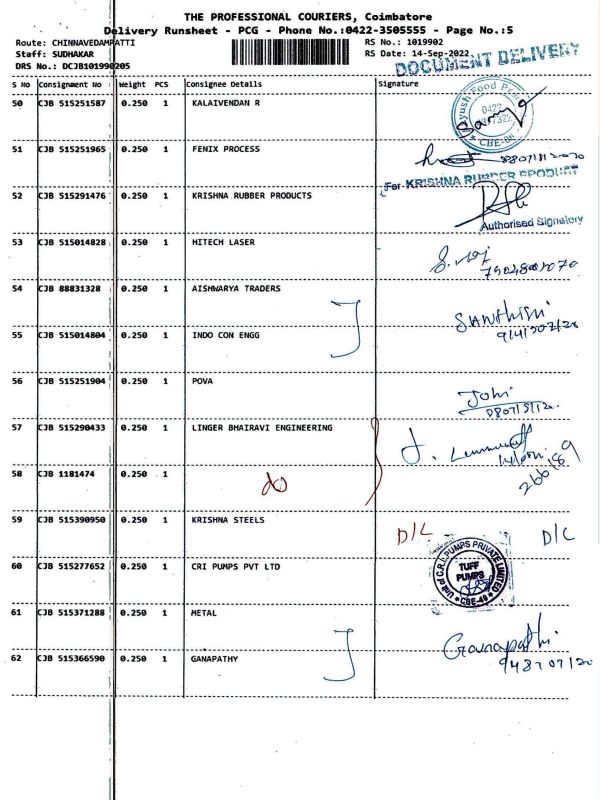 THE PROFESSIONAL COURIERS, Coimbatore
Delivery Runsheet - PCG - Phone No.:0422-3505555 - Page No.:5
Route: CHINNAVEDAMPATTI
RS No.: 1019902
Staff: SUDHAKAR
RS Date: 14-Sep-2022
DRS No.: DCJB101990205
DOCUMENT DELIVERY
S No Consignment No Weight PCS Consignee Details Signature
50 CJB 515251587 0.250 1 KALAIVENDAN R
0422
CBE-
51 CJB 515251965 0.250 1 FENIX PROCESS
For KRISHNA RUBBER PRODUCT
52 CJB 515291476 0.250 1 KRISHNA RUBBER PRODUCTS
Authorised Signatory
53 CJB 515014828 0.250 1 HITECH LASER
54 CJB 88831328 0.250 1 AISHWARYA TRADERS
55 CJB 515014804 0.250 1 INDO CON ENGG
56 CJB 515251904 0.250 1 POVA
57 CJB 515290433 0.250 1 LINGER BHAIRAVI ENGINEERING
58 CJB 1181474 0.250 1 do
59 CJB 515390950 0.250 1 KRISHNA STEELS D/C D/C
60 CJB 515277652 0.250 1 CRI PUMPS PVT LTD
Unit of C.R.I. PUMPS PRIVATE LIMITED
TUFF
PUMPS
CBE-49
61 CJB 515371288 0.250 1 METAL
62 CJB 515366590 0.250 1 GANAPATHY
Ganapathi